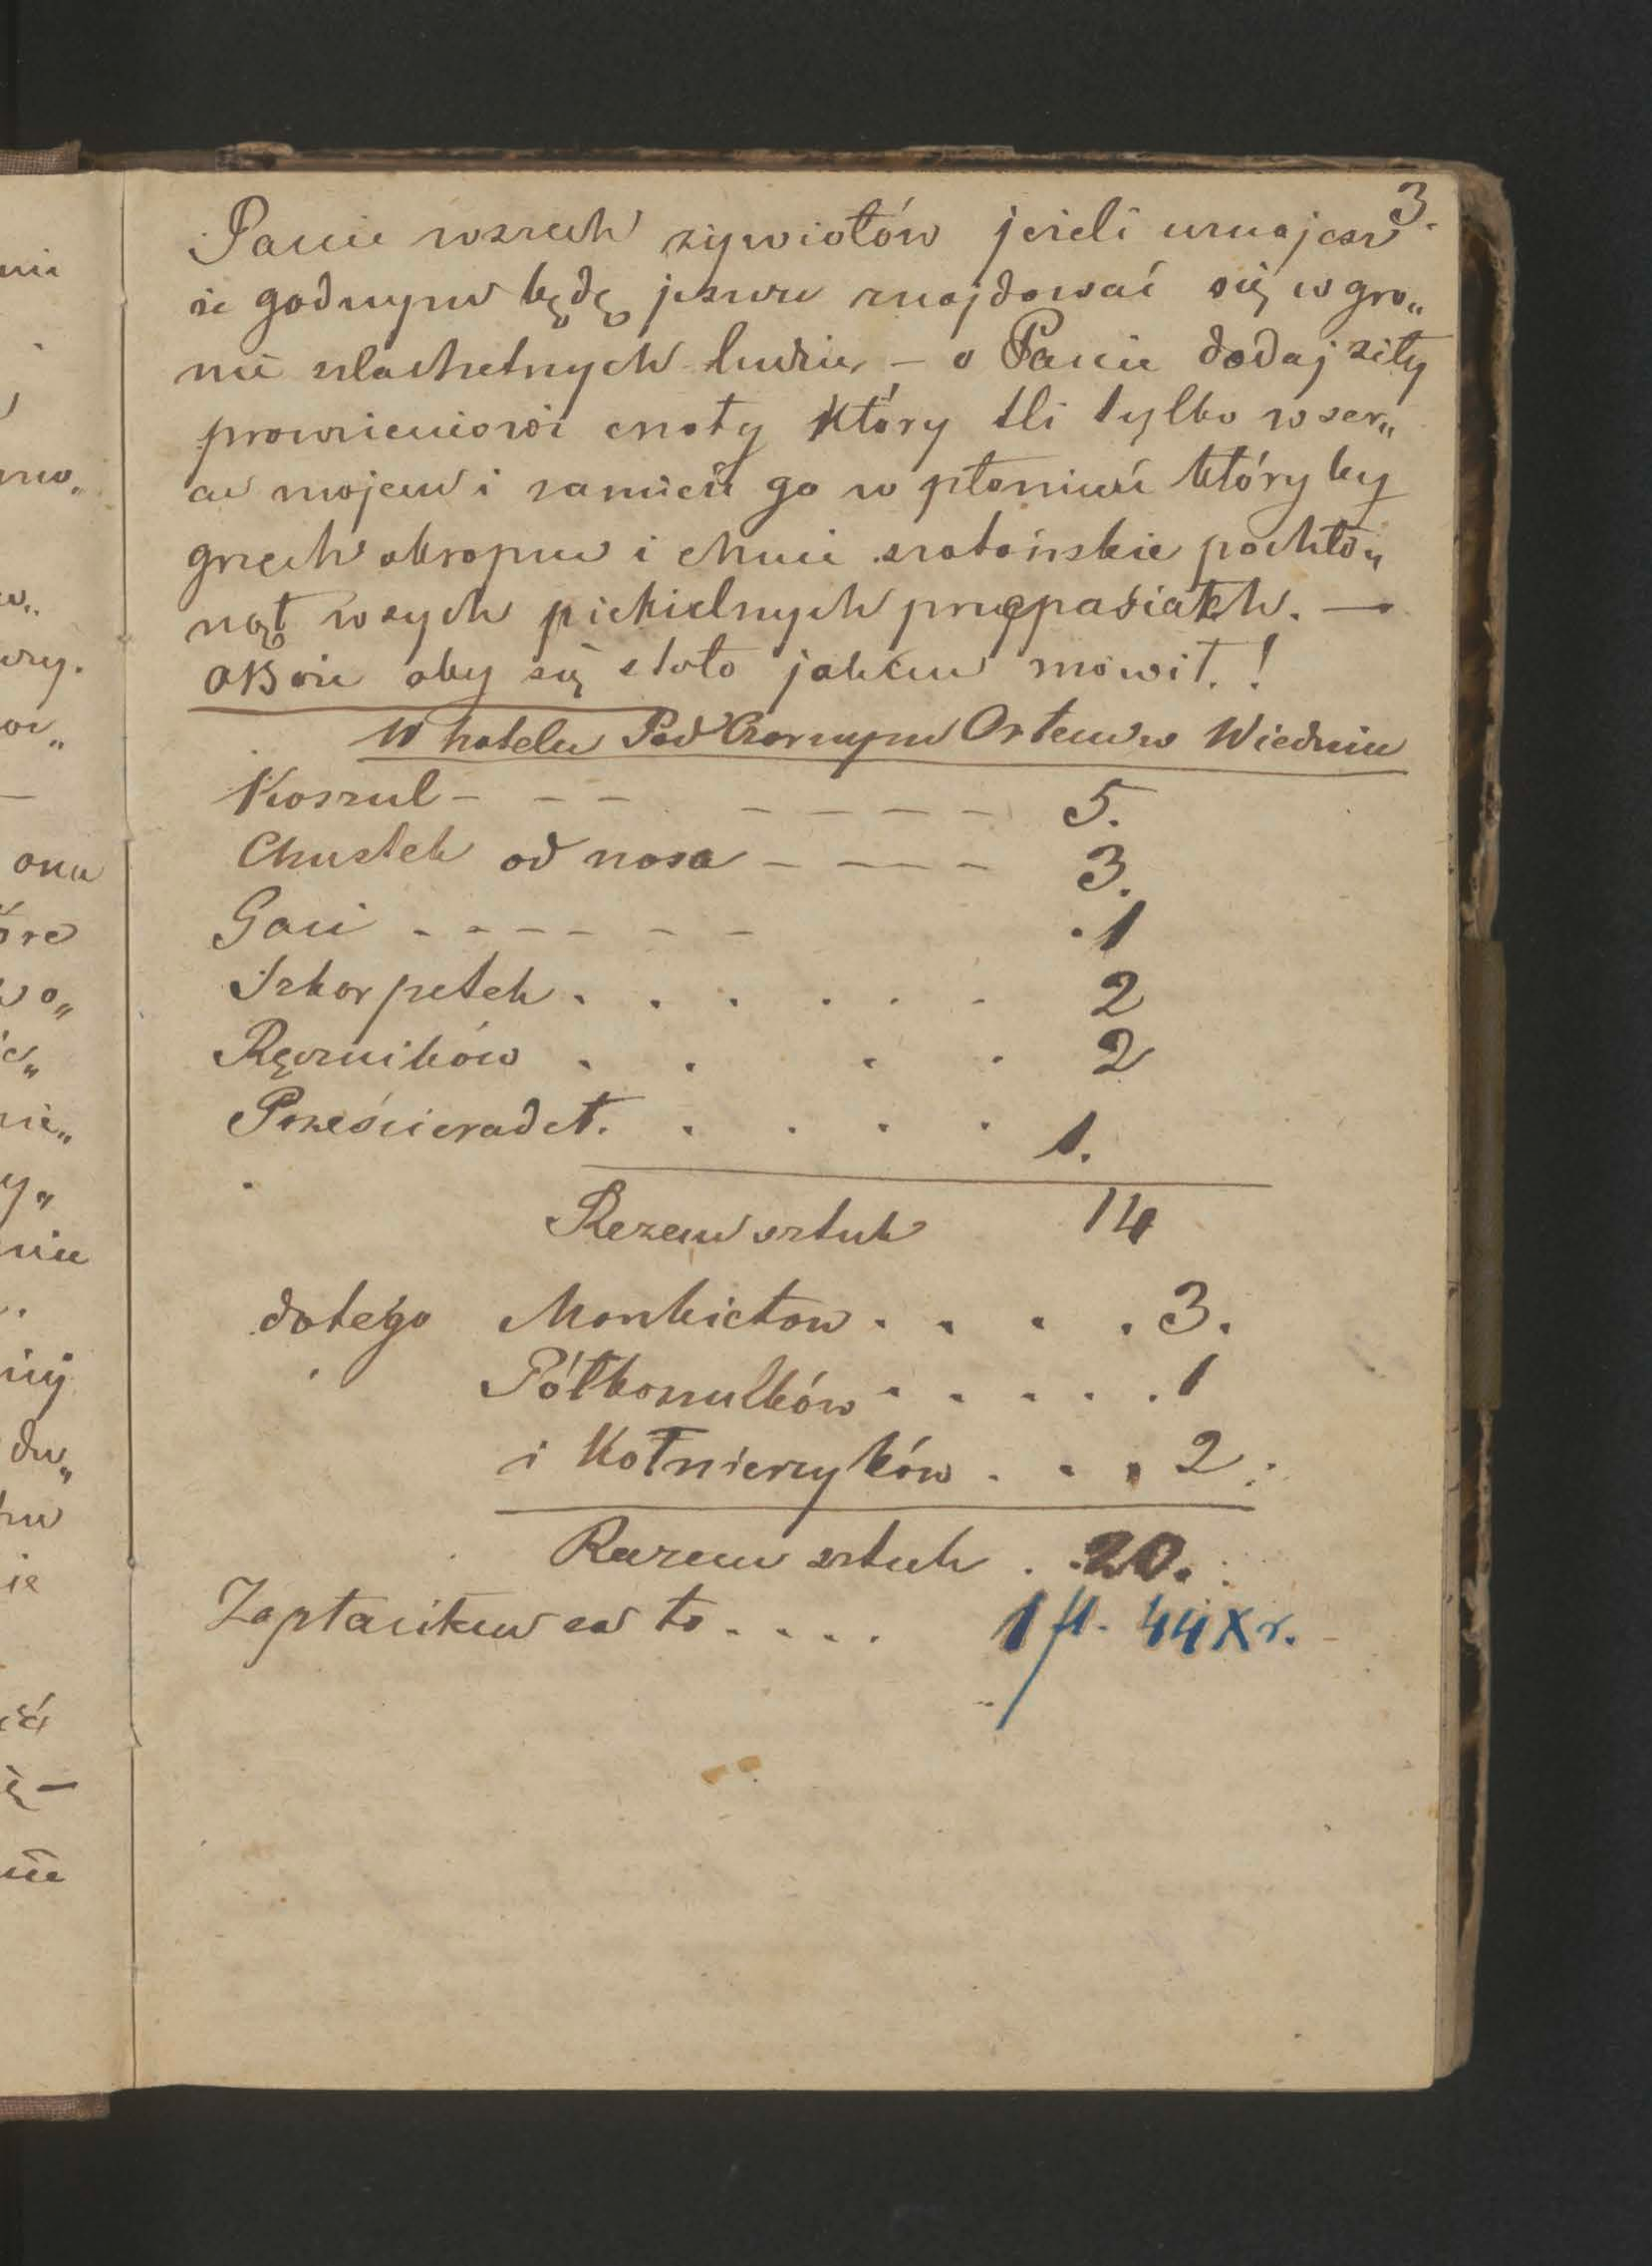 3.
Panie wszech żywiołów jeżeli uznajesz
że godnym będę jeszcze znajdować się w gro„
nie szlachetnych ludzi, – o Panie dodaj siły
promieniowi cnoty który tli tylko w ser„
cu mojem i zamień go w płomień któryby
grzech okropny i chuci szatańskie pochło„
nął w sych piekielnych przepaściach. —
O Boże aby się stało jakem mówił.!
W hotelu Pod Czarnym Orłem w Wiedniu
Koszul – – – – – – – – 5.
Chustek od nosa – – – – 3.
Gaci - - - - - - - . 1
Szkarpetek . . . . . . 2
Ręczników . . . . 2
Prześcieradeł. . . . . 1.
Razem sztuk 14
do tego Mankietow . . . . 3.
Półkoszulków . . . . . 1
i Kołnierzyków . . . 2.
Razem sztuk . . 20.
Zapłaciłem za to . . . . 1 fl. 44 Xr.